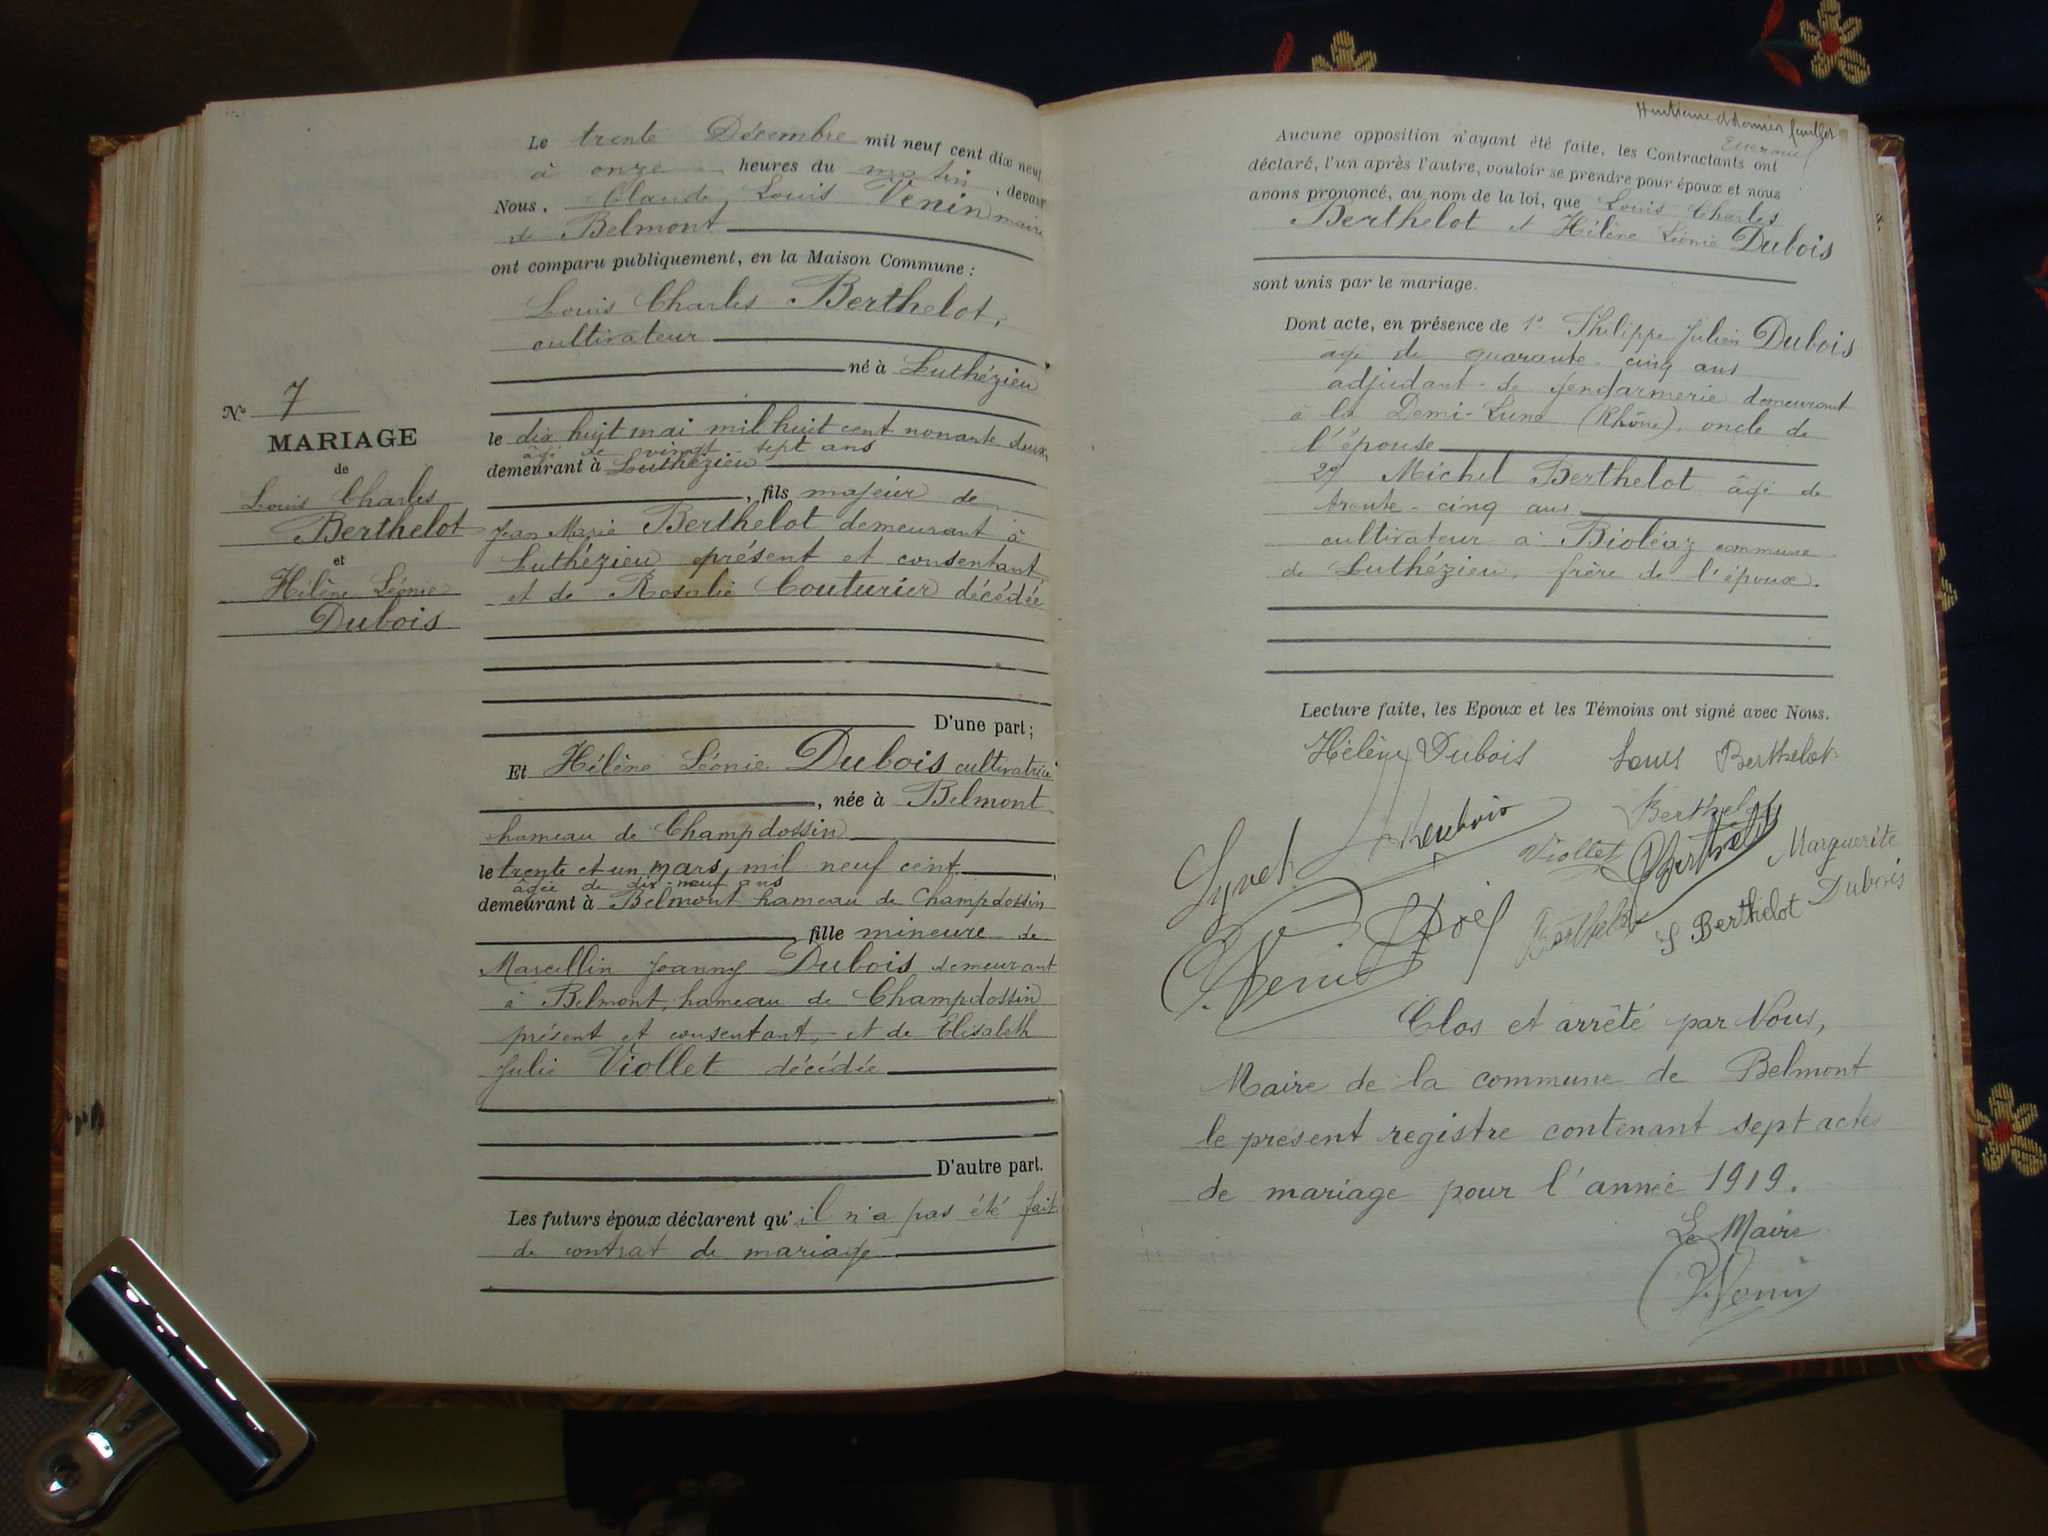 Nº 7
MARIAGE
de
Louis Charles
Berthelot
et
Hélène Léonie
Dubois
Le trente Décembre mil neuf cent dix neuf
à onze heures du matin, devant
Nous, Claude Louis Venin maire
de Belmont
ont comparu publiquement, en la Maison Commune :
Louis Charles Berthelot,
cultivateur
né à Luthézieu
le dix huit mai mil huit cent nonante deux,
âgé de vingt sept ans
demeurant à Luthézieu
, fils majeur de
Jean Marie Berthelot demeurant à
Luthézieu présent et consentant
et de Rosalie Couturier décédée
D'une part ;
Et Hélène Léonie Dubois cultivatrice
, née à Belmont
hameau de Champdossin
le trente et un mars, mil neuf cent
âgée de dix-neuf ans
demeurant à Belmont hameau de Champdossin
fille mineure de
Marcellin Joanny Dubois demeurant
à Belmont, hameau de Champdossin
présent et consentant, et de Elisabeth
Julie Viollet décédée
D'autre part.
Les futurs époux déclarent qu'il n'a pas été fait
de contrat de mariage
Huitième et dernier feuillet
Aucune opposition n'ayant été faite, les Contractants ont
déclaré, l'un après l'autre, vouloir se prendre pour époux et nous
avons prononcé, au nom de la loi, que Louis Charles
Berthelot et Hélène Léonie Dubois
sont unis par le mariage.
Dont acte, en présence de 1º Philippe Julien Dubois
âgé de quarante-cinq ans
adjudant de gendarmerie demeurant
à la Demi-Lune (Rhône), oncle de
l'épouse
2º Michel Berthelot âgé de
trente-cinq ans
cultivateur à Bioléaz commune
de Luthézieu, frère de l'époux.
Lecture faite, les Epoux et les Témoins ont signé avec Nous.
Hélène Dubois Louis Berthelot
Berthelot
Viollet Berthelot Marguerite
Dubois
Berthelot S Berthelot
Venin
Clos et arrêté par Nous,
Maire de la commune de Belmont
le présent registre contenant sept actes
de mariage pour l'année 1919.
Le Maire
Venin